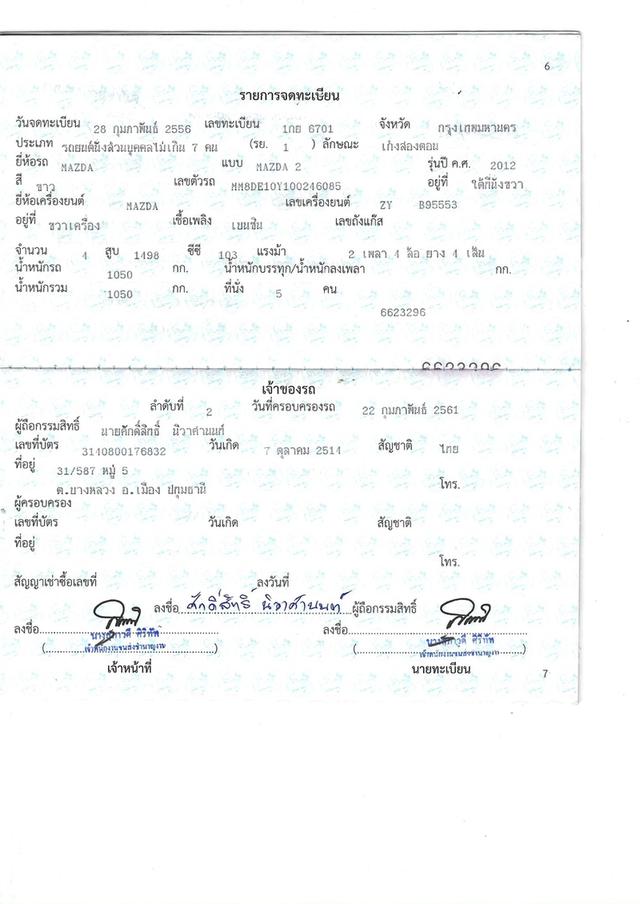 6
รายการจดทะเบียน
วันจดทะเบียน 28 กุมภาพันธ์ 2556 เลขทะเบียน 1กย 6701 จังหวัด กรุงเทพมหานคร
ประเภท รถยนต์นั่งส่วนบุคคลไม่เกิน 7 คน (รย. 1 ) ลักษณะ เก๋งสองตอน
ยี่ห้อรถ MAZDA แบบ MAZDA 2 รุ่นปี ค.ศ. 2012
สี ขาว เลขตัวรถ MM8DE10Y100246085 อยู่ที่ ใต้ที่นั่งขวา
ยี่ห้อเครื่องยนต์ MAZDA เลขเครื่องยนต์ ZY B95553
อยู่ที่ ขวาเครื่อง เชื้อเพลิง เบนซิน เลขถังแก๊ส
จำนวน 4 สูบ 1498 ซีซี 103 แรงม้า 2 เพลา 4 ล้อ ยาง 4 เส้น
น้ำหนักรถ 1050 กก. น้ำหนักบรรทุก/น้ำหนักลงเพลา กก.
น้ำหนักรวม 1050 กก. ที่นั่ง 5 คน
6623296
6623296
เจ้าของรถ
ลำดับที่ 2 วันที่ครอบครองรถ 22 กุมภาพันธ์ 2561
ผู้ถือกรรมสิทธิ์ นายศักดิ์สิทธิ์ นิวาศานนท์
เลขที่บัตร 3140800176832 วันเกิด 7 ตุลาคม 2514 สัญชาติ ไทย
ที่อยู่ 31/587 หมู่ 5
ต.บางหลวง อ.เมือง ปทุมธานี โทร.
ผู้ครอบครอง
เลขที่บัตร วันเกิด สัญชาติ
ที่อยู่
โทร.
สัญญาเช่าซื้อเลขที่ ลงวันที่
ลงชื่อ ศักดิ์สิทธิ์ นิวาศานนท์ ผู้ถือกรรมสิทธิ์
ลงชื่อ ลงชื่อ
เจ้าพนักงานขนส่งชำนาญงาน เจ้าพนักงานขนส่งชำนาญงาน
เจ้าหน้าที่ นายทะเบียน
7